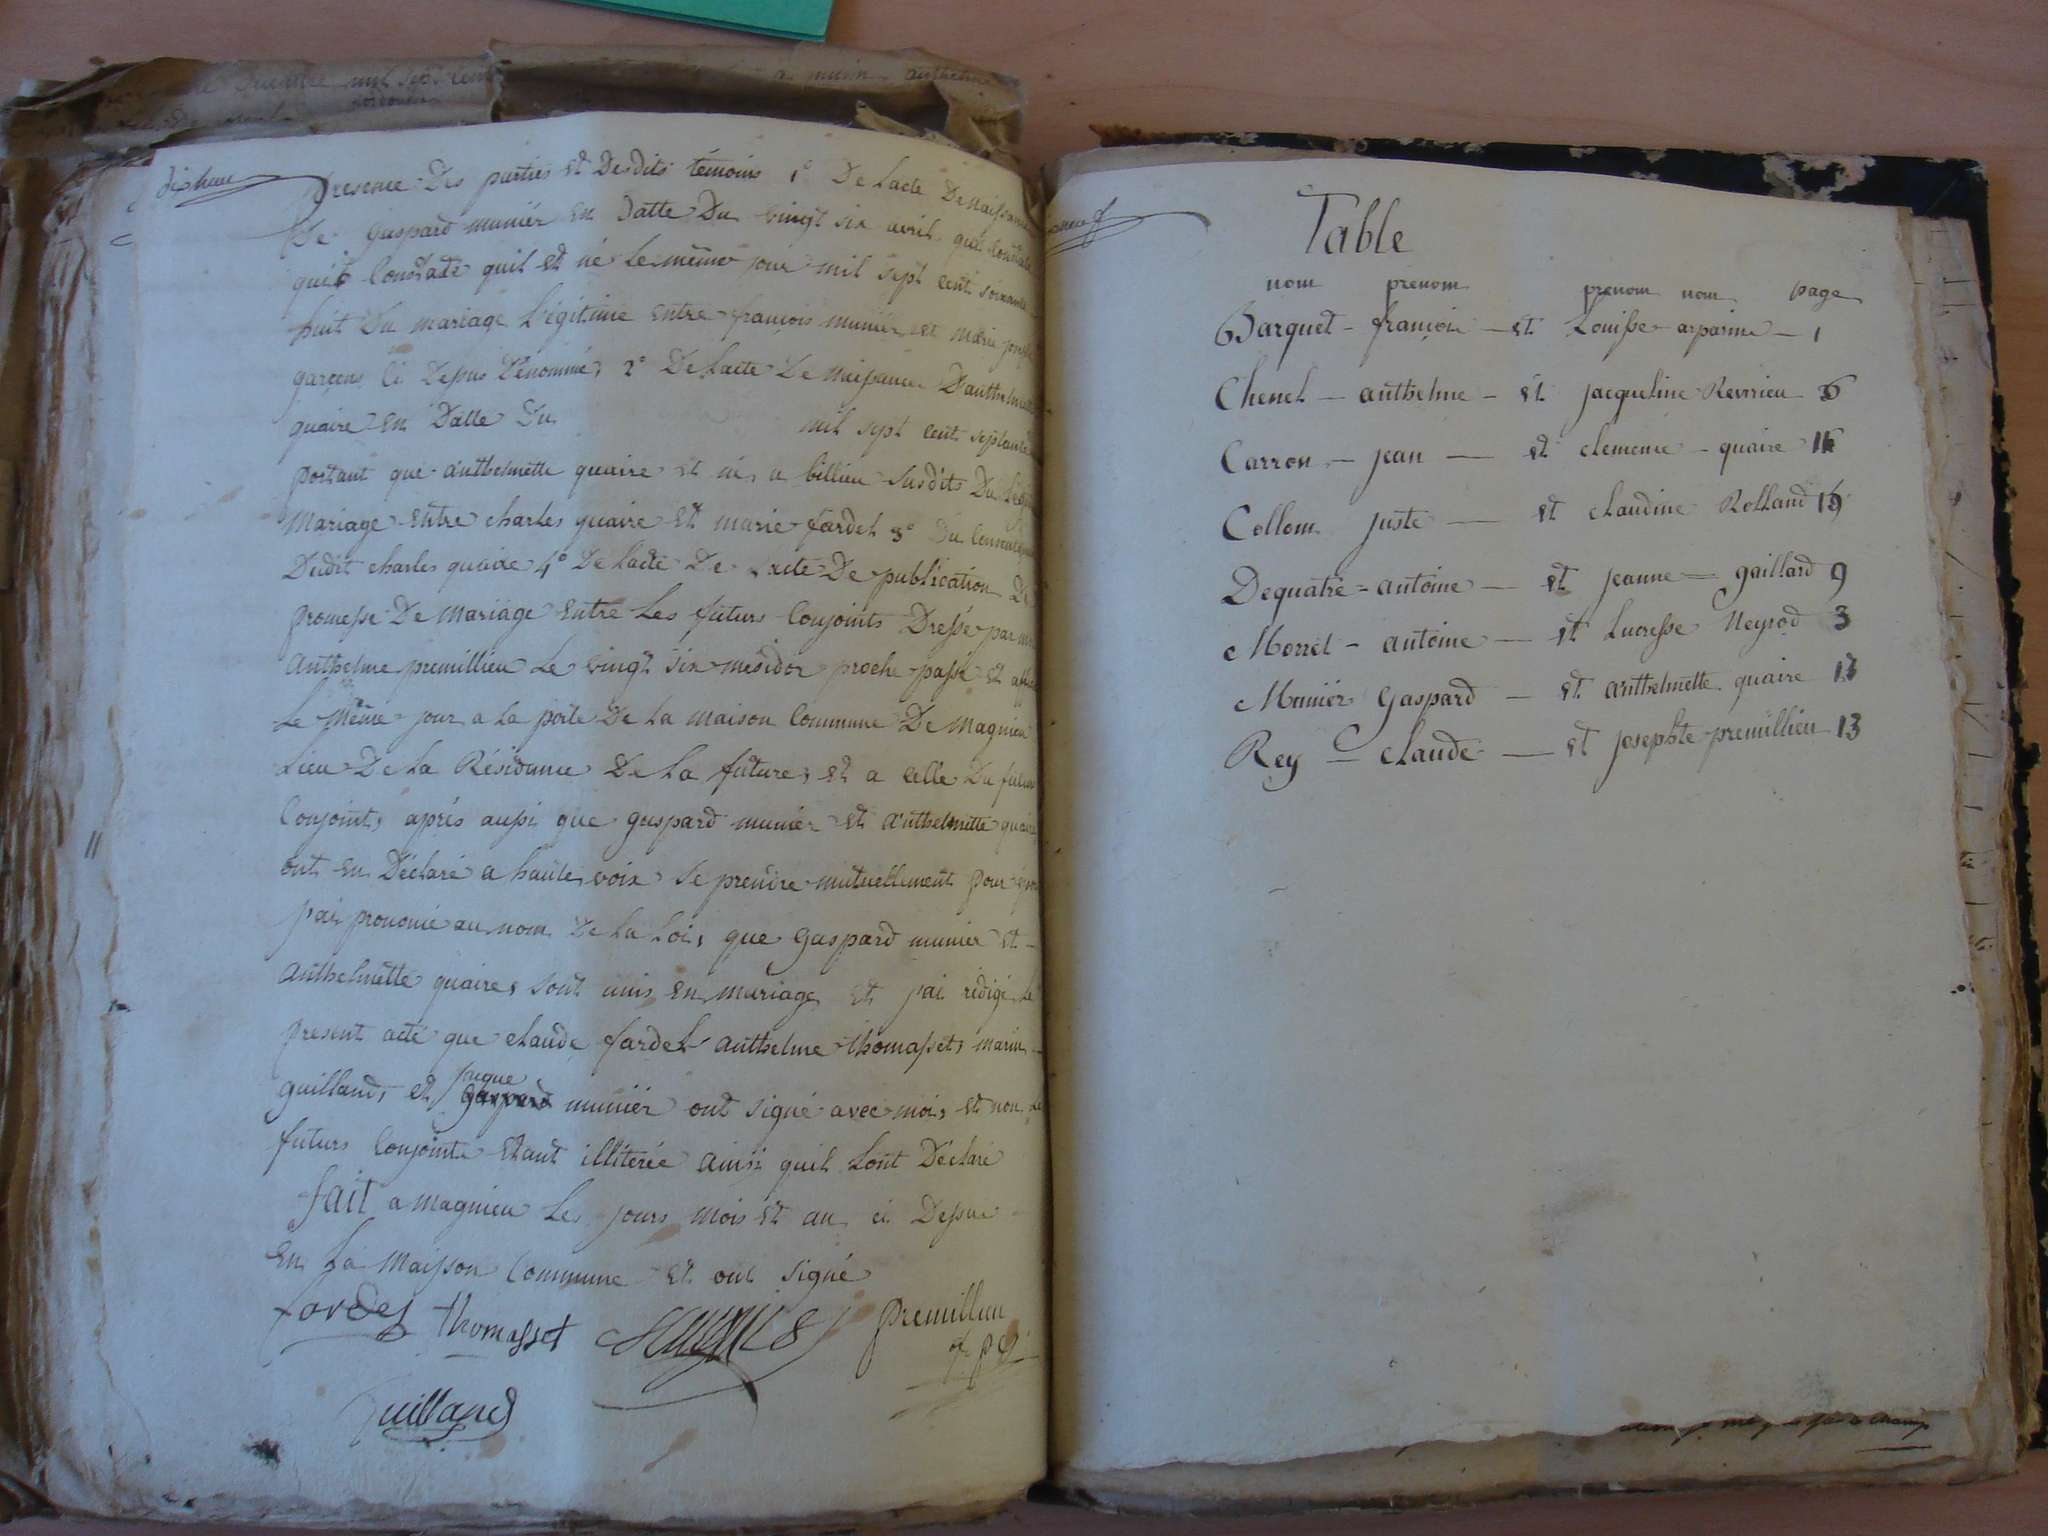 dixhuit
presence Des parties Et Desdits témoins 1° De Lacte De naissance
De Gaspard muniér En Datte Du vingt six avril qui constate
quil Constate quil Et né Le même jour mil sept cent soixante
huit Du mariage Légitime Entre françois muniér et marie
garçons Ci Depus Dénommé, 2° De Lacte De naissance Danthelmette
quaire En Datte Du mil sept cent septante
portant que anthelmette quaire Et né a billieu Susdits Du
Mariage Entre charles quaire Et marie fardel 3° Du
Dudit charles quaire 4° De Lacte De Lacte De publication De
promesse De mariage Entre Les futurs Conjoints Dressé par
Anthelme premillieu Le vingt six mesidor proche passé Et
Le même jour a La porte De La maison Commune De Magnieu
Lieu De La Résidance De La future, Et a Celle Du futur
Conjoint, aprés aussi que gaspard muniér Et Anthelmette quaire
ont En Déclaré a haute voix Se prendre mutuellement pour
jai prononcé au nom De La Loi, que Gaspard munier Et
Anthelmette quaire, sont unis En mariage Et jai rédigé Le
present acte que claude fardel Anthelme thomasset, marin
guilland, et gaspard jacque muniér ont signé avec moi, Et non Le
futurs Conjoints Etant illiterée ainsi quil Lont Déclaré
fait a magnieu Les jours mois Et an ci Depue
En La Maison Commune Et ont signé
fardel thomasset premillieu
Guilland
Table
nom prenom prenom nom page
Barquet - françois - et Louisse arparine - 1
Chenel - anthelme - Et jacqueline Revrieu 6
Carron - jean - Et clemence - quaire 11
Collom juste - et claudine Rolland 15
Dequatre = antoine - et jeanne = gaillard 9
Morret - antoine - et Lucresse Neyrod 3
Muniér Gaspard - et anthelmette quaire 17
Rey = claude - et josephte premillieu 13